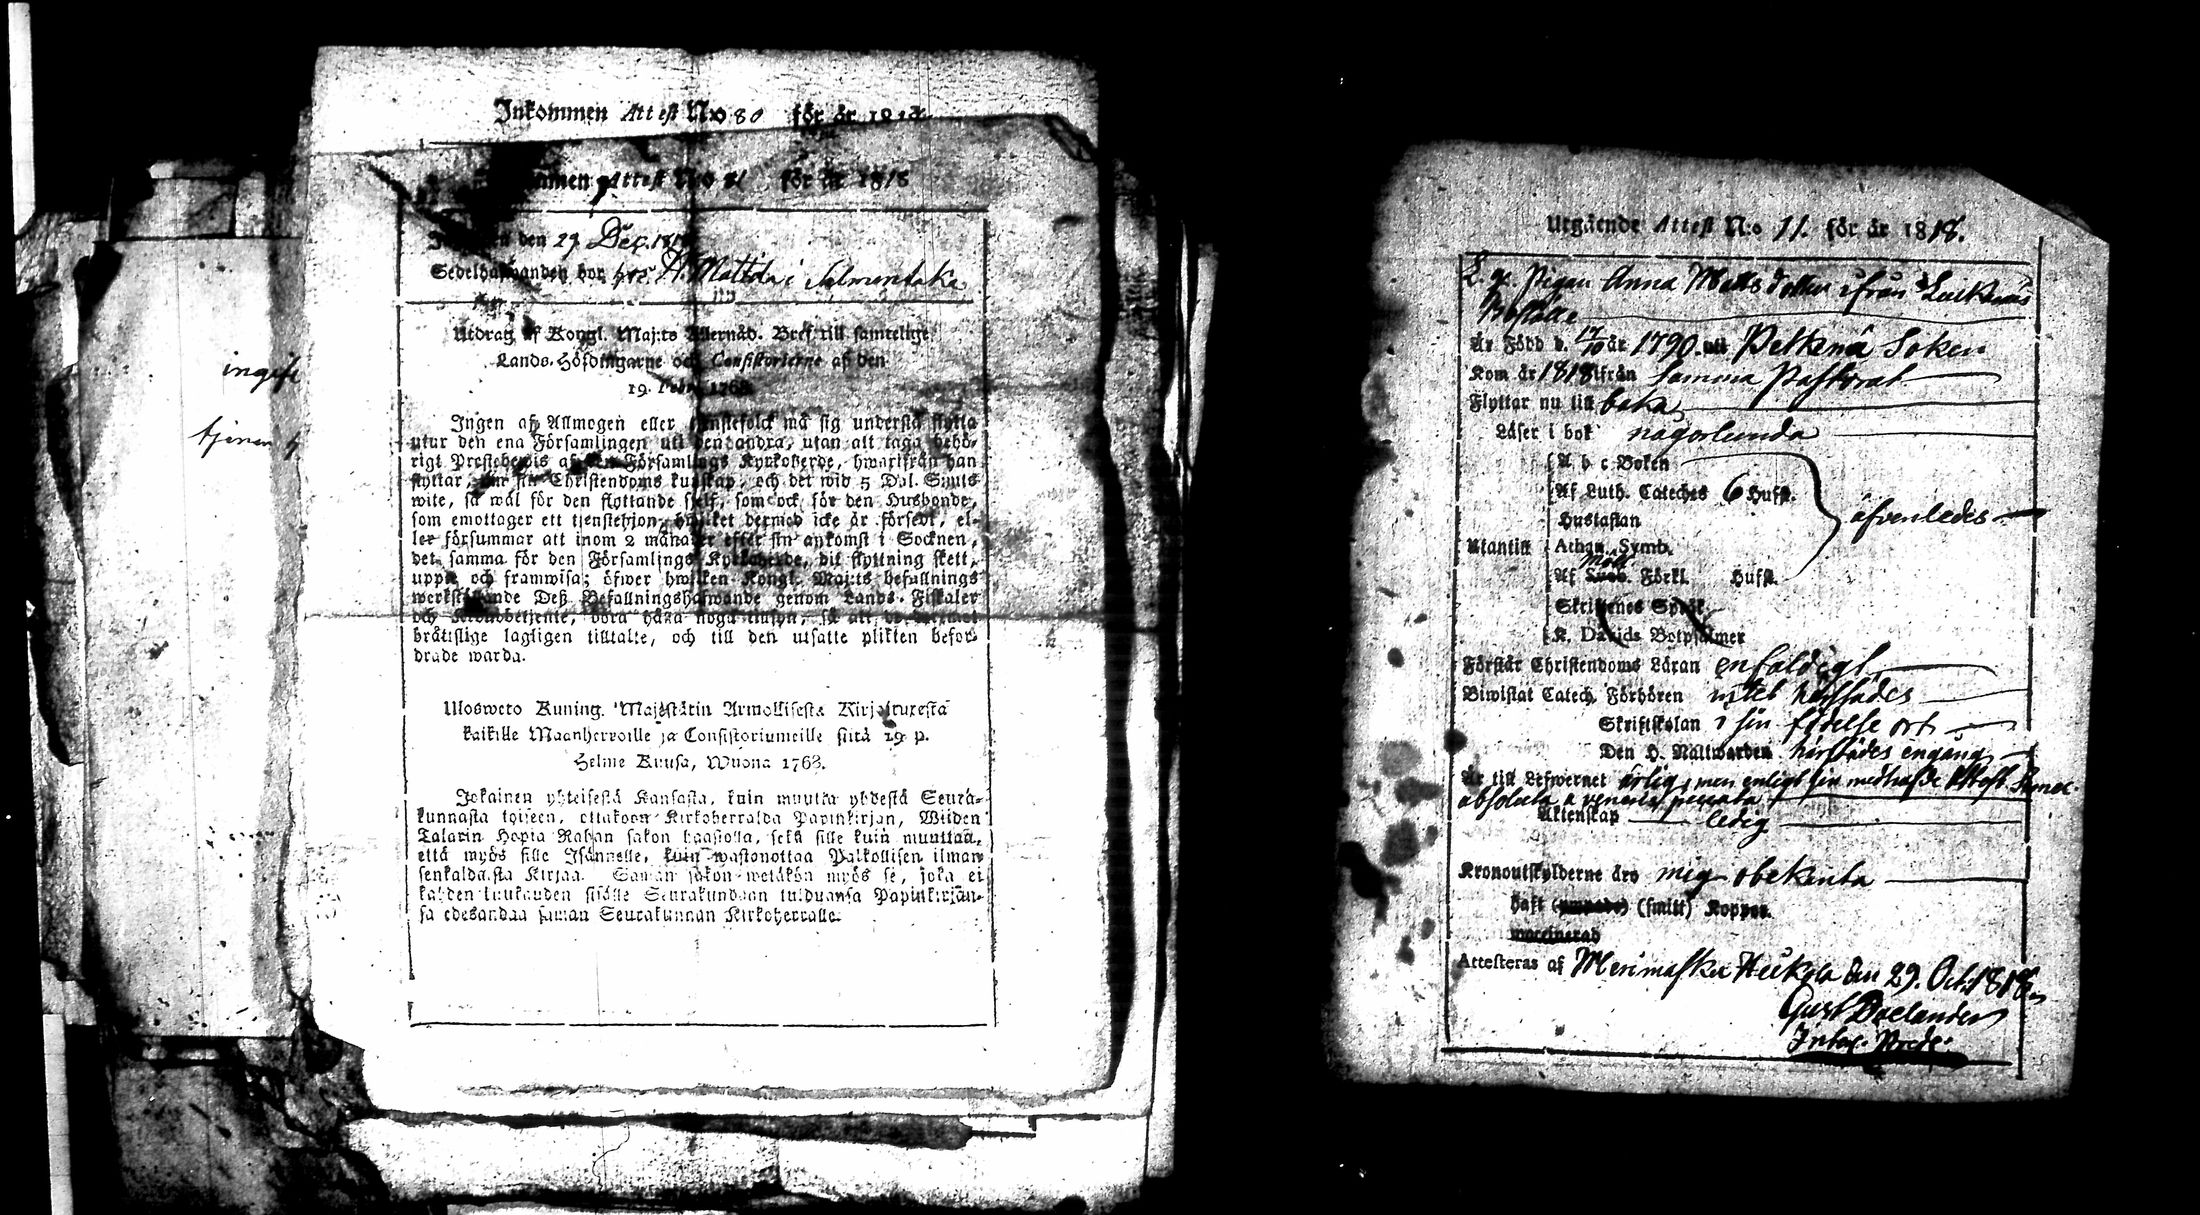 Inkommen Attest No 80 för år 1818
Attest No 81 för år 1818
den 29 Dec. 1818
Sedelhafwanden bor hos
Utdrag af Kongl. Maj:ts Allernåd. Bref till samtelige
Lands-Höfdingarne och Consistorierne af den
19. Febr. 1768.
Ingen af Allmogen eller tjenstefolck må sig understå flytta
utur den ena Församlingen uti den andra, utan att taga behö-
rigt Prestebewis af den Församlings Kyrkoherde, hwarifrån han
flyttar, om sin Christendoms kunskap, och det wid 5 Dal. Smts
wite, så wäl för den flyttande sjelf, som ock för den Husbonde,
som emottager ett tjenstehjon, hwilket dermed icke är försedt, el-
ler försummar att inom 2 månader efter sin ankomst i Socknen,
det samma för den Församlings Kyrkoherde, dit flyttning skett,
uppte och framwisa; öfwer hwilken Kongl. Maj:ts befallnings
werkställande Deß Befallningshafwande genom Lands-Fiskaler
och Kronobetjente, böra hafwa noga tilsyn, så att
bråtislige lagligen tilltalte, och till den utsatte plikten befor-
drade warda.
Ulosweto Kuning. Majestätin Armollisesta Kirjoituxesta
kaikille Maanherroille ja Consistoriumeille siitä 19 p.
Helme Kuusa, Wuona 1768.
Jokainen yhteisestä Kansasta, kuin muutta yhdestä Seura-
kunnasta toiseen, ottakoon Kirkoherralda Papinkirjan, Wiiden
Talarin Hopia Rahan sakon haastolla, sekä sille kuin muuttaa,
että myös sille Isännelle, kuin wastonottaa Palkollisen ilman
senkaldaista Kirjaa. Saman sakon wetäkön myös se, joka ei
kahden kuukauden sisälle Seurakundaan tulduansa Papinkirjan-
sa edesandaa saman Seurakunnan Kirkoherralle.
tjenar
Utgående Attest N:o 11. för år 1818.
Pigan Anna Matts dotter ifrån
Är Född d. 17/10 år 1790 uti Pelkenä Soken
Kom år 1818 ifrån samma Pastorat
Flyttar nu till baka
Läser i bok någorlunda
A b c Boken
Af Luth. Cateches 6 Hufst.
Hustaflan
Utantill Athan. Symb.
Af Förkl. Hufst.
äfvenledes
Skriftenes Språk
K. Davids Botpsalmer
Förstår Christendoms Läran enfaldigt
Biwistat Catech. Förhören intet härstädes
Skriftskolan i sin födelse ort
Den H. Nattwarden härstädes engång
Är till Lefwernet ärlig, men enligt sin medhafde Attest
absoluta
Äktenskap ledig
Kronoutskylderne äro mig obekanta
haft (ympade) (smitt) Koppor.
waccinerad
Attesteras af Merimasku Heikola den 29. Oct. 1818.